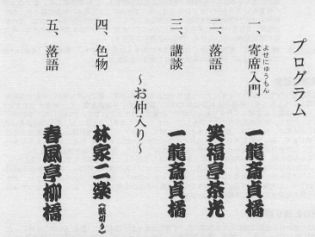 プログラム
一、寄席入門 一龍斎貞橘
よせにゅうもん
二、落語 笑福亭茶光
三、講談 一龍斎貞橘
～お仲入り～
四、色物 林家二楽（紙切り）
五、落語 春風亭柳橋